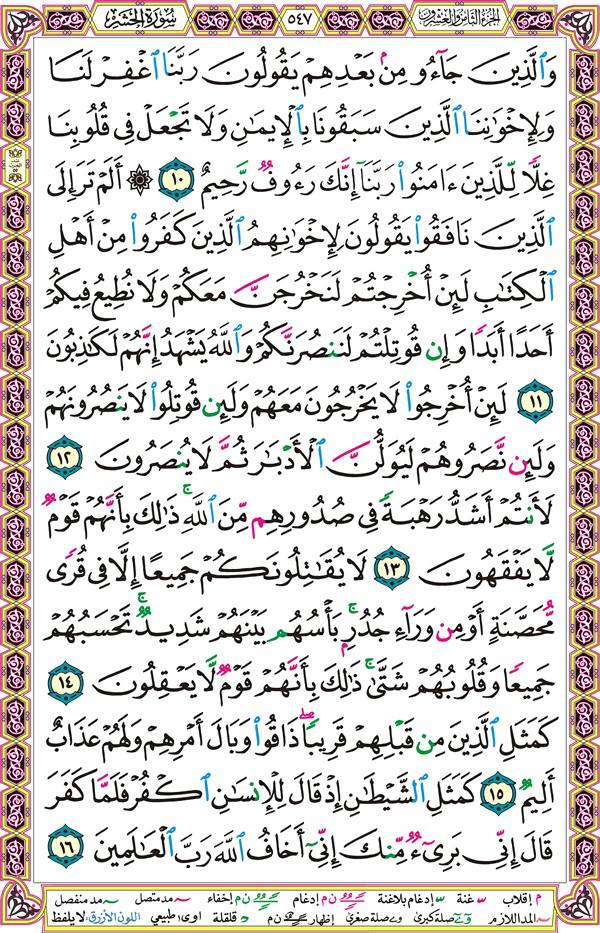 الجزء الثامن والعشرون
٥٤٧
سورة الحشر
وَٱلَّذِينَ جَآءُو مِنۢ بَعْدِهِمْ يَقُولُونَ رَبَّنَا ٱغْفِرْ لَنَا
وَلِإِخْوَٰنِنَا ٱلَّذِينَ سَبَقُونَا بِٱلْإِيمَٰنِ وَلَا تَجْعَلْ فِى قُلُوبِنَا
غِلًّا لِّلَّذِينَ ءَامَنُوا۟ رَبَّنَآ إِنَّكَ رَءُوفٌ رَّحِيمٌ ١٠ ۞ أَلَمْ تَرَ إِلَى
ٱلَّذِينَ نَافَقُوا۟ يَقُولُونَ لِإِخْوَٰنِهِمُ ٱلَّذِينَ كَفَرُوا۟ مِنْ أَهْلِ
ٱلْكِتَٰبِ لَئِنْ أُخْرِجْتُمْ لَنَخْرُجَنَّ مَعَكُمْ وَلَا نُطِيعُ فِيكُمْ
أَحَدًا أَبَدًا وَإِن قُوتِلْتُمْ لَنَنصُرَنَّكُمْ وَٱللَّهُ يَشْهَدُ إِنَّهُمْ لَكَٰذِبُونَ
١١ لَئِنْ أُخْرِجُوا۟ لَا يَخْرُجُونَ مَعَهُمْ وَلَئِن قُوتِلُوا۟ لَا يَنصُرُونَهُمْ
وَلَئِن نَّصَرُوهُمْ لَيُوَلُّنَّ ٱلْأَدْبَٰرَ ثُمَّ لَا يُنصَرُونَ ١٢
لَأَنتُمْ أَشَدُّ رَهْبَةً فِى صُدُورِهِم مِّنَ ٱللَّهِ ۚ ذَٰلِكَ بِأَنَّهُمْ قَوْمٌ
لَّا يَفْقَهُونَ ١٣ لَا يُقَٰتِلُونَكُمْ جَمِيعًا إِلَّا فِى قُرًى
مُّحَصَّنَةٍ أَوْ مِن وَرَآءِ جُدُرٍۭ ۚ بَأْسُهُم بَيْنَهُمْ شَدِيدٌ ۚ تَحْسَبُهُمْ
جَمِيعًا وَقُلُوبُهُمْ شَتَّىٰ ۚ ذَٰلِكَ بِأَنَّهُمْ قَوْمٌ لَّا يَعْقِلُونَ ١٤
كَمَثَلِ ٱلَّذِينَ مِن قَبْلِهِمْ قَرِيبًا ۖ ذَاقُوا۟ وَبَالَ أَمْرِهِمْ وَلَهُمْ عَذَابٌ
أَلِيمٌ ١٥ كَمَثَلِ ٱلشَّيْطَٰنِ إِذْ قَالَ لِلْإِنسَٰنِ ٱكْفُرْ فَلَمَّا كَفَرَ
قَالَ إِنِّى بَرِىٓءٌ مِّنكَ إِنِّىٓ أَخَافُ ٱللَّهَ رَبَّ ٱلْعَٰلَمِينَ ١٦
م إقلاب غنة إدغام بلاغنة ن م إدغام ن م إخفاء مد متصل مد منفصل
المد اللازم صلة كبرى صلة صغرى إظهار ن م قلقلة اوى: طبيعي اللون الأزرق: لا يلفظ